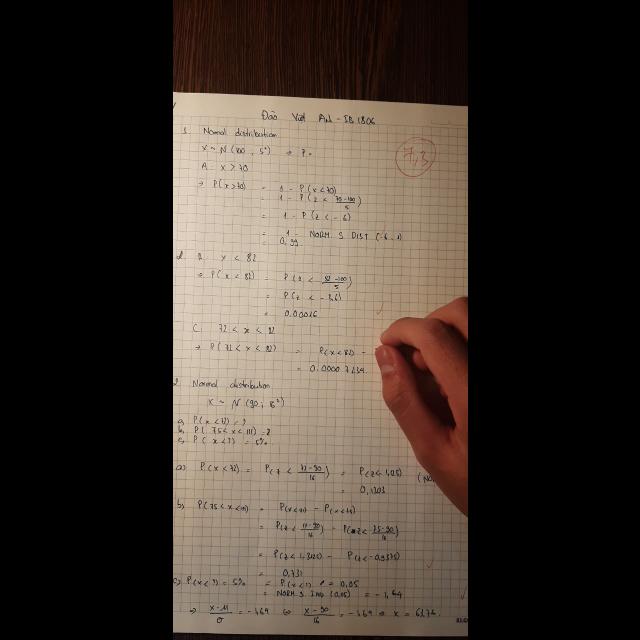 Đào Việt Anh - IB1806
7,3
1. Normal distribution
X ~ N (100, 5²) ⇒ P.
A. x > 70
⇒ P(x>70) = 1 - P(x<70)
= 1 - P(z < 70-100/5)
= 1 - P(z < -6)
= 1 - NORM.S.DIST (-6, 1)
= 0,99
B. x < 82
⇒ P(x < 82) = P(z < 82-100/5)
= P(z < -3,6)
= 0.00016
C. 72 < x < 82
⇒ P(72 < x < 82) = P(x < 82) -
= 0.0000
2. Normal distribution
X ~ N (90; 16²)
a, P(x < 72) = ?
b, P(75 < x < 111) = ?
c, P(x < ?) = 5%
a) P(x < 72) = P(z < 72-90/16) = P(z < -1,125)
= 0,1303
b) P(75 < x < 111) = P(x<111) - P(x<75)
= P(z < 111-90/16) - P(z < 75-90/16)
= P(z < 1,3125) - P(z < -0,9375)
= 0,731
c) P(x < ?) = 5% = P(x<?) = 0,05
= NORM.S.INV (0,05) = -1,64
⇒ x-μ/σ = -1,64 ⇔ x-90/16 = -1,64 ⇒ x = 63,76